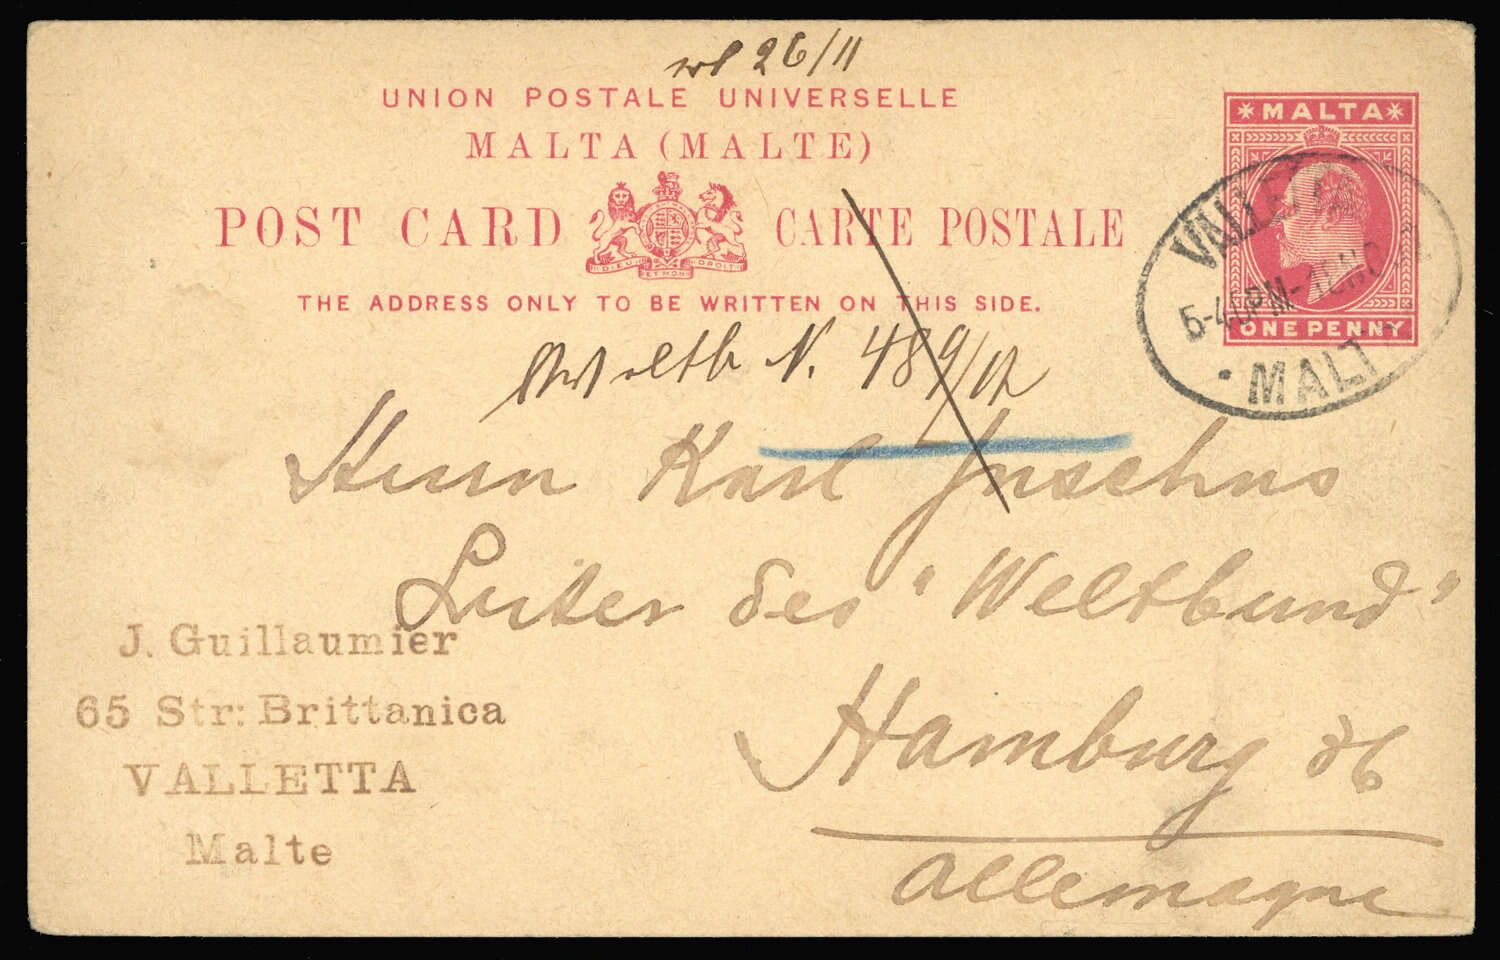 26/11
UNION POSTALE UNIVERSELLE
MALTA (MALTE)
POST CARD CARTE POSTALE
THE ADDRESS ONLY TO BE WRITTEN ON THIS SIDE.
MALTA
ONE PENNY
VALLETTA
5-40PM
MALT
N. 489/
Herrn Karl
Leiter des "Weltbund"
Hamburg
Allemagne
J. Guillaumier
65 Str: Brittanica
VALLETTA
Malte